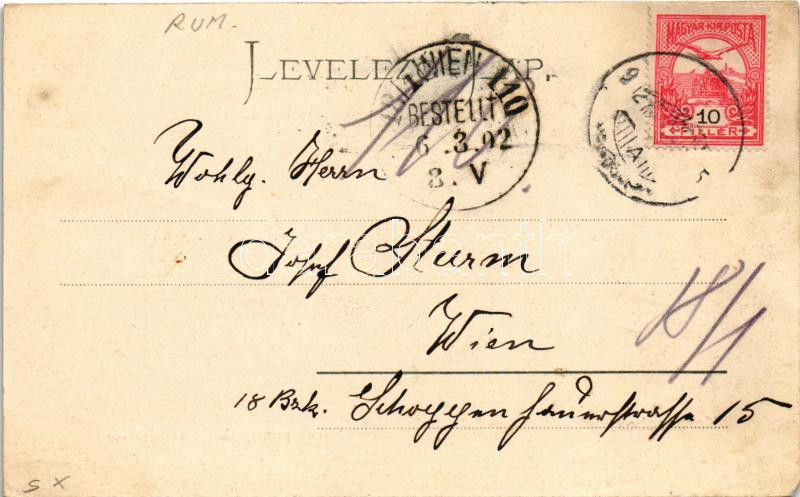 RUM.
LEVELEZŐ-LAP.
MAGYAR KIR. POSTA
10
FILLÉR
WIEN 110
BESTELLT
6.3.02
8. V
Wohlg. Herrn
Josef Sturm
Wien
18/1
18 Bzk. Schoppenhauerstrasse 15
darabanth
S X